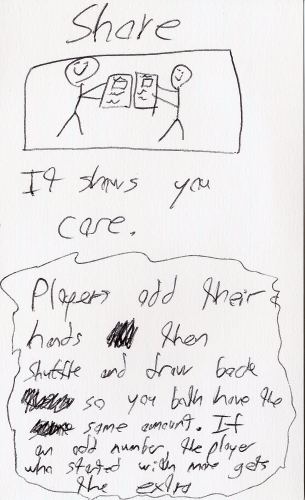 Share
It shows you
care.
Players add their
hands then
shuffle and draw back
so you both have the
same amount. If
an odd number the player
who started with more gets
the extra